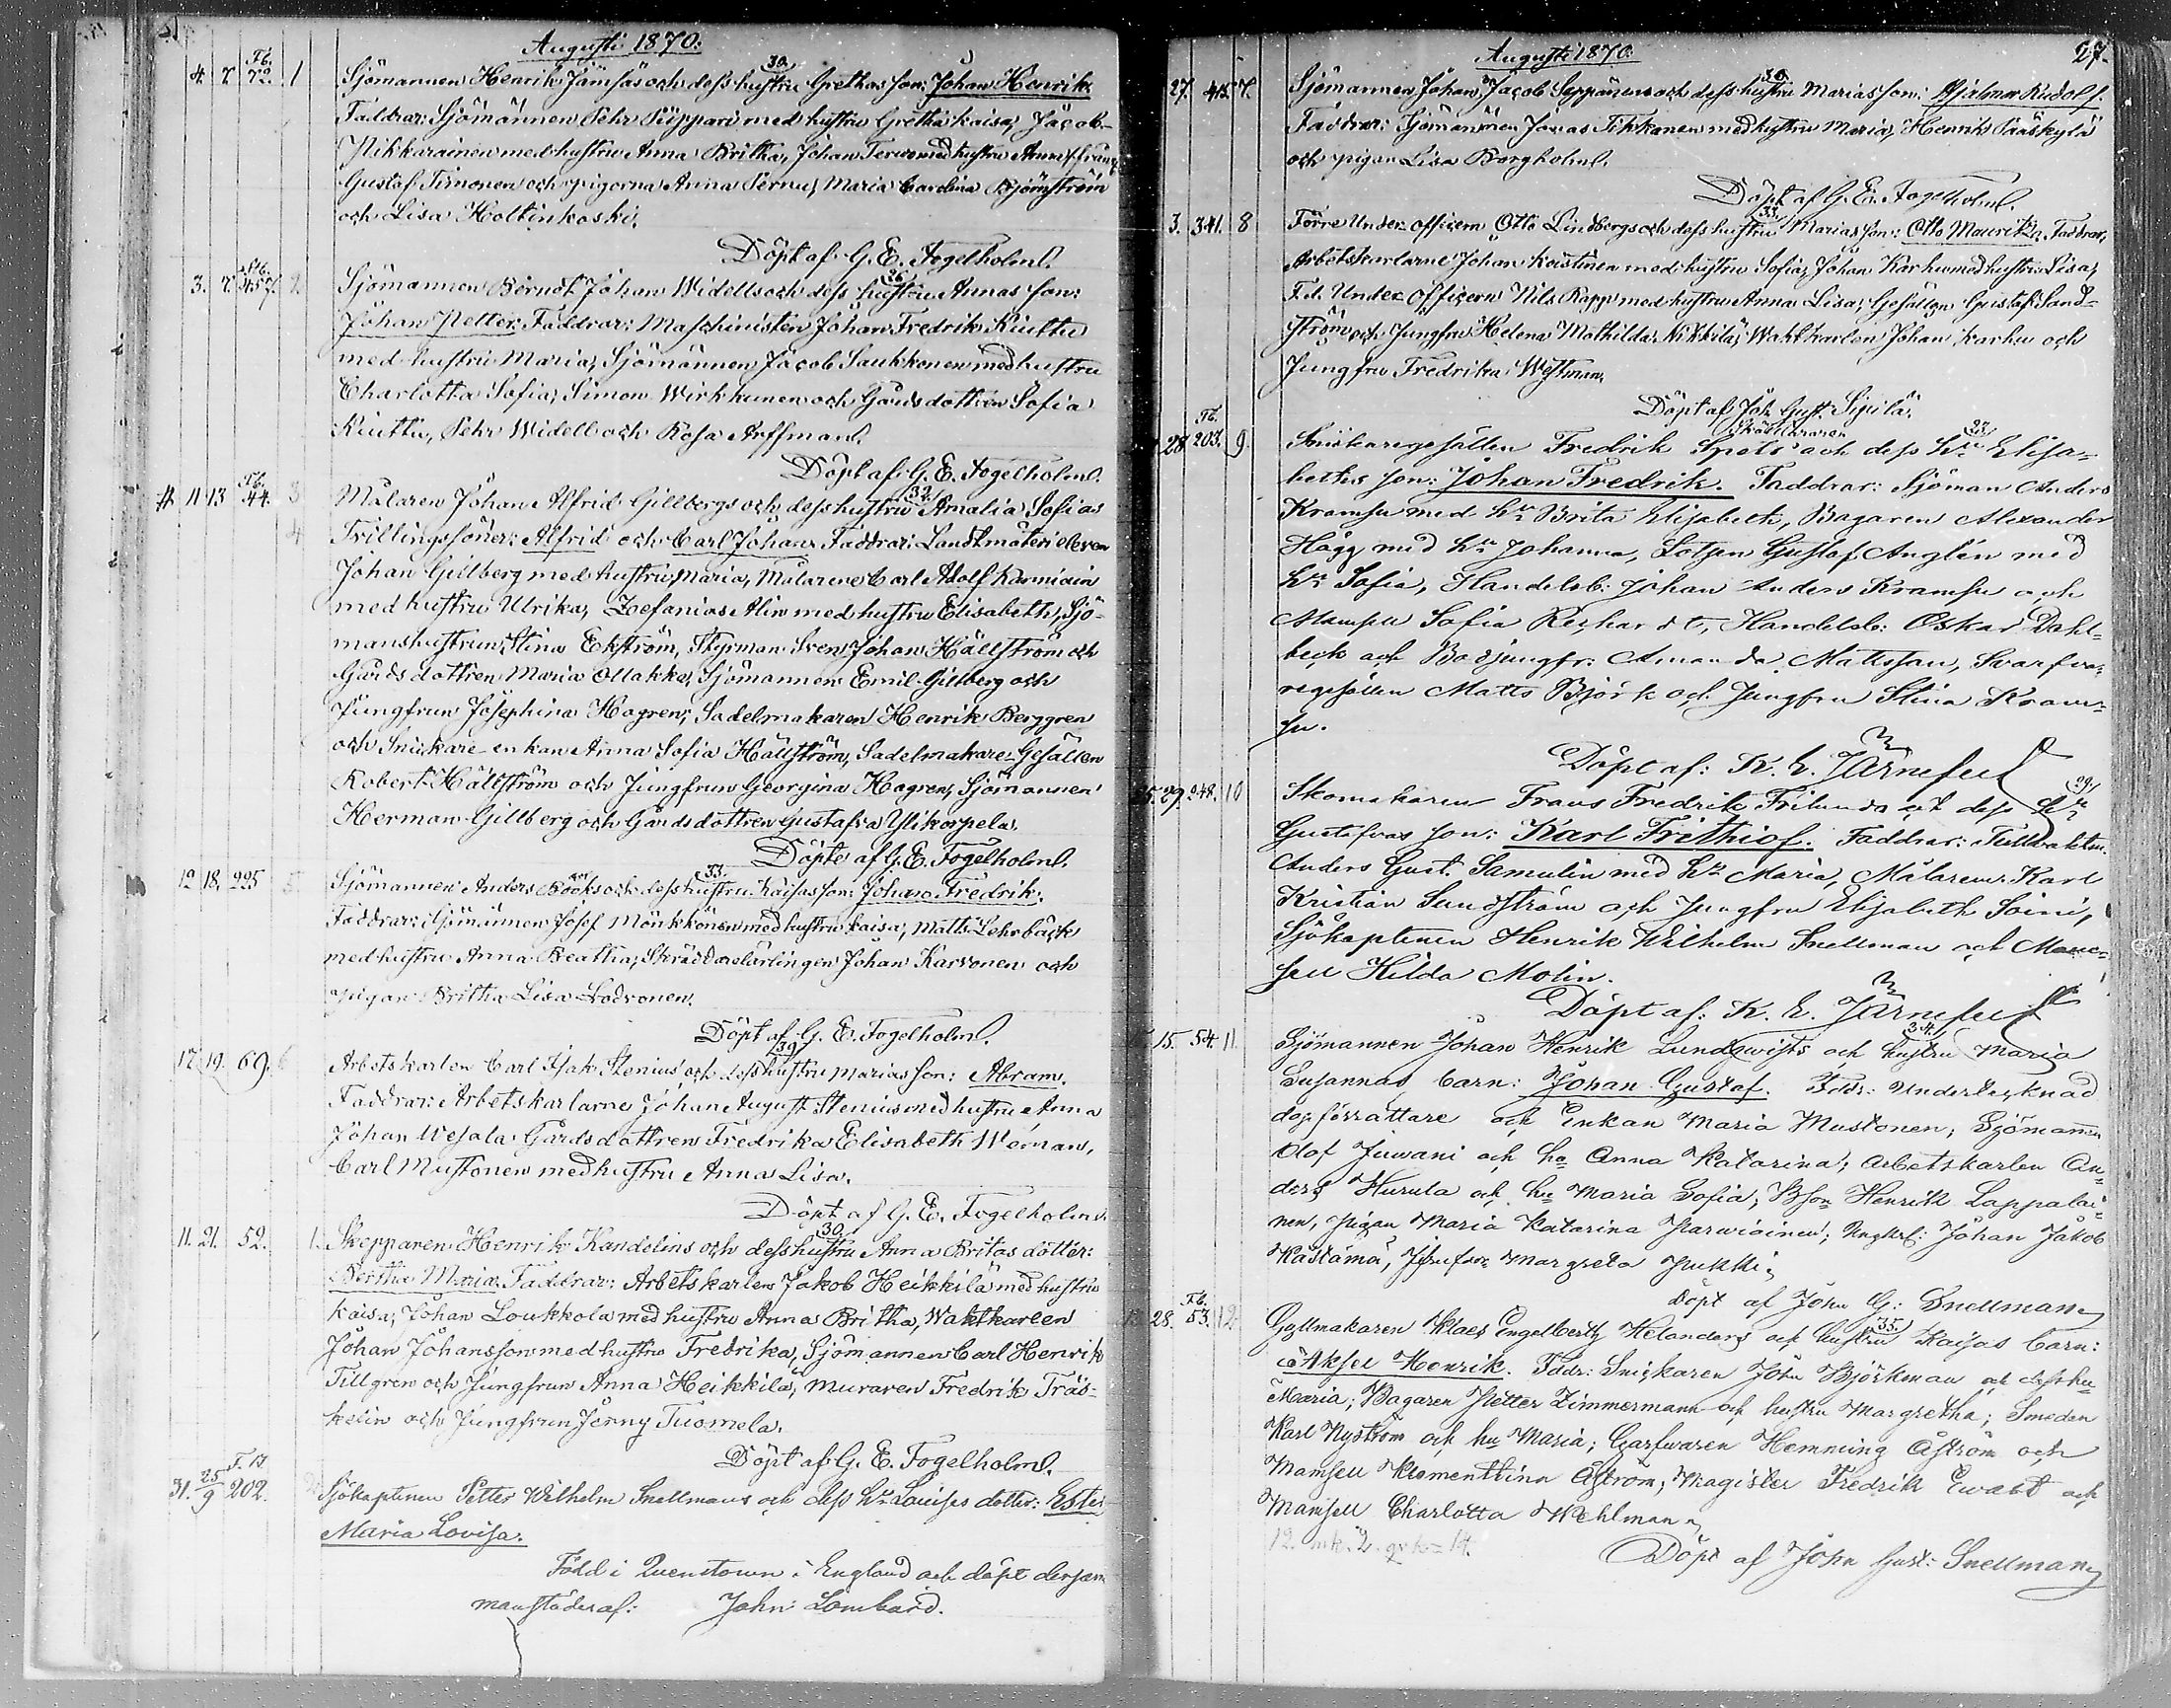 Augusti 1870.
4. 7. Fb. 72. 1 Sjömannen Henrik Jämsäs och dess hustru (30.) Grethas son: Johan Henrik.
Faddrar: Sjömännen Pehr Piippari med hustru Gretha Kaisa, Jacob
Nikkarainen med hustru Anna Britha, Johan Terwo med hustru Anna,
Gustaf Timonen och pigorna Anna Pernu, Maria Carolina Björnström
och Lisa Holtinkoski.
Döpt af G. E. Fogelholm.
3. 7. Fb. 457. 2 Sjömannen Berndt Johan Widells och dess hustru (36.) Annas son:
Johan Petter. Faddrar: Maschinisten Johan Fredrik Kiuttu
med hustru Maria, Sjömännen Jacob Saukkonen med hustru
Charlotta Sofia, Simon Wirkkunen och Gårdsdottren Sofia
Kiuttu, Pehr Widell och Rosa Arffman.
Döpt af G. E. Fogelholm.
11. 13. Fb. 44. 3 Målaren Johan Alfrid Gillbergs och dess hustru (32.) Amalia Sofias
4 Trillingssöner: Alfrid och Carl Johan. Faddrar: Landtmäterieleven
Johan Gillberg med hustru Maria, Målarene Carl Adolf
med hustru Ulrika, Zefanias Alin med hustru Elisabeth, Sjö-
manshustrun Stina Ekström, Styrman Sven Johan Hällström och
Gårdsdottren Maria Ollakka, Sjömannen Emil Gillberg och
Jungfrun Josephina Hagren, Sadelmakaren Henrik Berggren
och Snickare-enkan Anna Sofia Hällström, Sadelmakare-Gesällen
Robert Hällström och Jungfrun Georgina Hagren, Sjömannen
Herman Gillberg och Gårdsdottren Gustafva Ylikorpela.
Döpte af G. E. Fogelholm.
12. 18. 225 5 Sjömannen Anders Bööks och dess hustru (33.) Kaisas son: Johan Fredrik.
Faddrar: Sjömännen Josef Mönkkönen med hustru Kaisa, Matts Lehrbäck
med hustru Anna Beatha, Skräddarelärlingen Johan Karvonen och
pigan Britha Lisa Lodvonen.
Döpt af G. E. Fogelholm.
17. 19. 69. 6 Arbetskarlen Carl Isak Stenius' och dess hustru (39.) Marias son: Abram.
Faddrar: Arbetskarlarne Johan August Stenius med hustru Anna
Johan Wesala Gårdsdottren Fredrika Elisabeth Wöman,
Carl Mustonen med hustru Anna Lisa.
Döpt af G. E. Fogelholm.
11. 21. 52. 1. Skepparen Henrik Kandelins och dess hustru (30.) Anna Britas dotter:
Bertha Maria. Faddrar: Arbetskarlen Jakob Heikkilä med hustru
Kaisa, Johan Loukkola med hustru Anna Britha, Waktkarlen
Johan Johansson med hustru Fredrika, Sjömannen Carl Henrik
Tillgren och Jungfrun Anna Heikkilä, Muraren Fredrik Träs-
kelin och Jungfrun Jenny Tuomela.
Döpt af G. E. Fogelholm.
31. 25/9 202. Sjökaptenen Petter Wilhelm Snellmans och dess Hru Louises dotter: Ester
Maria Lovisa.
Född i Queenstown i England och döpt der sam-
manstädes af: John Lombard.
Augusti 1870.
27.
27. 415. 7. Sjömannen Johan Jacob Seppänens och dess hustru (30.) Marias son: Hjalmar Rudolf.
Faddrar: Sjömännen Jonas Tihkanen med hustru Maria, Henrik Pääskylä
och pigan Lisa Borgholm.
Döpt af G. E. Fogelholm.
3. 341. 8 Förre Under officern Otto Lindbergs och dess hustru (33.) Marias son: Otto Mauritz. Faddrar:
Arbetskarlarne Johan Koistinen med hustru Sofia, Johan Karhu med hustru Lisa,
F.d. Under Officern Nils Rapp med hustru Anna Lisa, Gesällen Gustaf Sand-
ström och Jungfru Helena Mathilda Nikkilä, Waktkarlen Johan Karhu och
Jungfru Fredrika Westman.
Döpt af Joh. Gust. Sipilä.
28. Fb. 203. 9. Snickaregesällen Fredrik Spets och dess Hru (37.) Elisa-
bethes son: Johan Fredrik. Faddrar: Sjöman Anders
Kramsu med Hru Brita Elisabeth, Bagaren Alexander
Hägg med Hru Johanna, Lotsen Gustaf Anglén med
Hru Sofia, Handelsb: Johan Anders Kramsu och
Mamsell Sofia Rechardt, Handelsb: Oskar Dahl-
beck och Bodjungfr: Amanda Mattsson, Svarfva-
regesällen Matts Björk och Jungfru Stina Kram-
su.
Döpt af: K. E. Järnefelt
29. 248. 10 Skomakaren Frans Fredrik Frilunds och dess Hru (29.)
Gustafvas son: Karl Frithiof. Faddrar: Tullvaktm.
Anders Gust. Samulin med Hru Maria, Målaren Karl
Kristian Sundström och Jungfru Elisabeth Soini,
Sjökaptenen Henrik Wilhelm Snellman och Mam-
sell Hilda Molin.
Döpt af: K. E. Järnefelt
15. 54. 11 Sjömannen Johan Henrik Lundqwists och hustru (34.) Maria
Susannas barn: Johan Gustaf. Fddr: Undertecknad
dopförrättare och Enkan Maria Mustonen; Sjömannen
Olof Juwani och hu Anna Katarina; Arbetskarlen An-
ders Hurula och hu Maria Sofia; Bson Henrik Lappalai-
nen, pigan Maria Katarina Parwiainen; Ungkrl: Johan Jakob
Kastamä, Margreta Pukki.
Döpt af John G: Snellman.
28. Fb. 53. 12 Gjellmakaren Klaes Engelberth Helanders och hustru (35.) Kaisas barn:
Aksel Henrik. Fddr: Snickaren John Björkman och dess hu
Maria; Bagaren Petter Zimmermann och hustru Margretha; Smeden
Karl Nyström och hu Maria; Garfwaren Hemming Åström och
Mamsell Klementina Åström; Magister Fredrik Ewast och
Mamsell Charlotta Wehlman.
12. mk. 2. qvk = 14.
Döpt af John Gust: Snellman